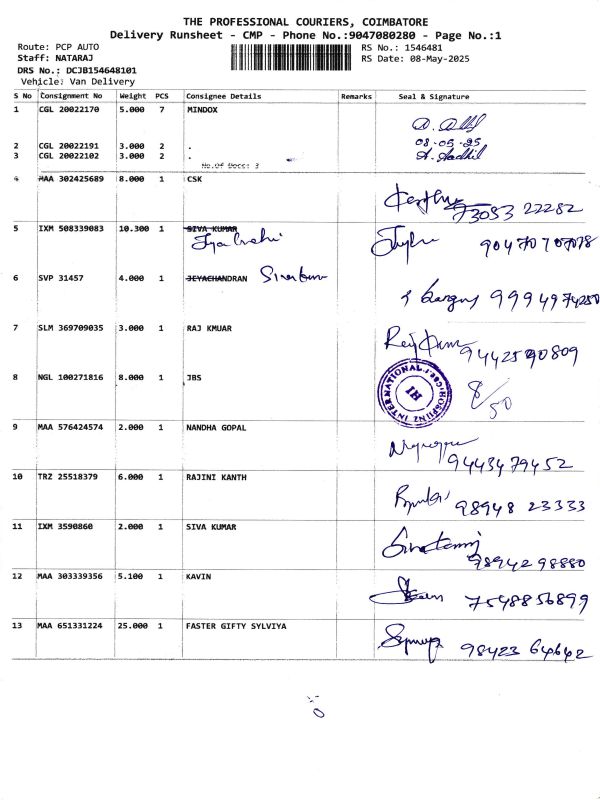 THE PROFESSIONAL COURIERS, COIMBATORE
Delivery Runsheet - CMP - Phone No.:9047080280 - Page No.:1
Route: PCP AUTO RS No.: 1546481
Staff: NATARAJ RS Date: 08-May-2025
DRS No.: DCJB154648101
Vehicle: Van Delivery
S No Consignment No Weight PCS Consignee Details Remarks Seal & Signature
1 CGL 20022170 5.000 7 MINDOX
2 CGL 20022191 3.000 2 . 08-05-25
3 CGL 20022102 3.000 2 . A. Aadhil
No.Of Docs: 3
4 MAA 302425689 8.000 1 CSK
73053 22282
5 IXM 508339083 10.300 1 SIVA KUMAR
90470 707078
6 SVP 31457 4.000 1 JEYACHANDRAN
9994974250
7 SLM 369709035 3.000 1 RAJ KMUAR
9442590809
8 NGL 100271816 8.000 1 JBS
INTERNATIONAL
HI
8/50
9 MAA 576424574 2.000 1 NANDHA GOPAL
9443479452
10 TRZ 25518379 6.000 1 RAJINI KANTH
98948 23333
11 IXM 3590860 2.000 1 SIVA KUMAR
98942 98880
12 MAA 303339356 5.100 1 KAVIN
7548856899
13 MAA 651331224 25.000 1 FASTER GIFTY SYLVIYA
98423 64642